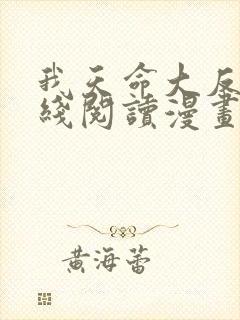 我天命大反
綫閱讀漫畫
黃海蕾